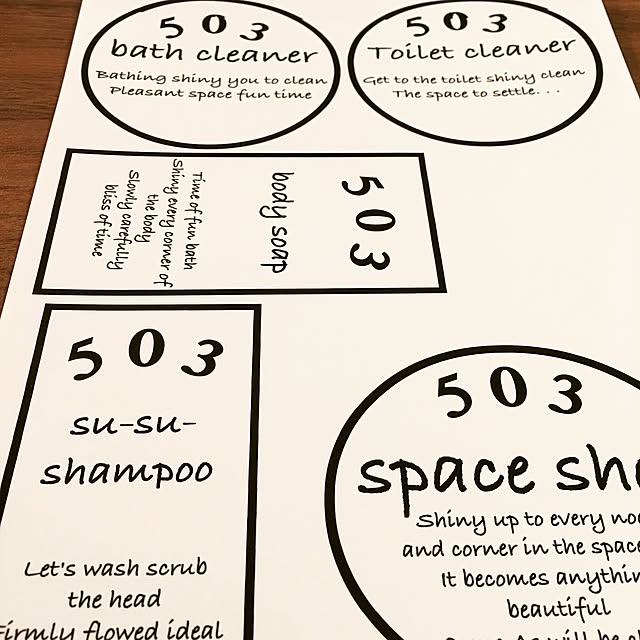 503
bath cleaner
Bathing shiny you to clean
Pleasant space fun time
503
Toilet cleaner
Get to the toilet shiny clean
The space to settle...
503
body soap
Time of fun bath
Shiny every corner of
the body
Slowly carefully
bliss of time
503
su-su-
shampoo
Let's wash scrub
the head
Firmly flowed ideal
503
space sh
Shiny up to every no
and corner in the space
It becomes anythin
beautiful